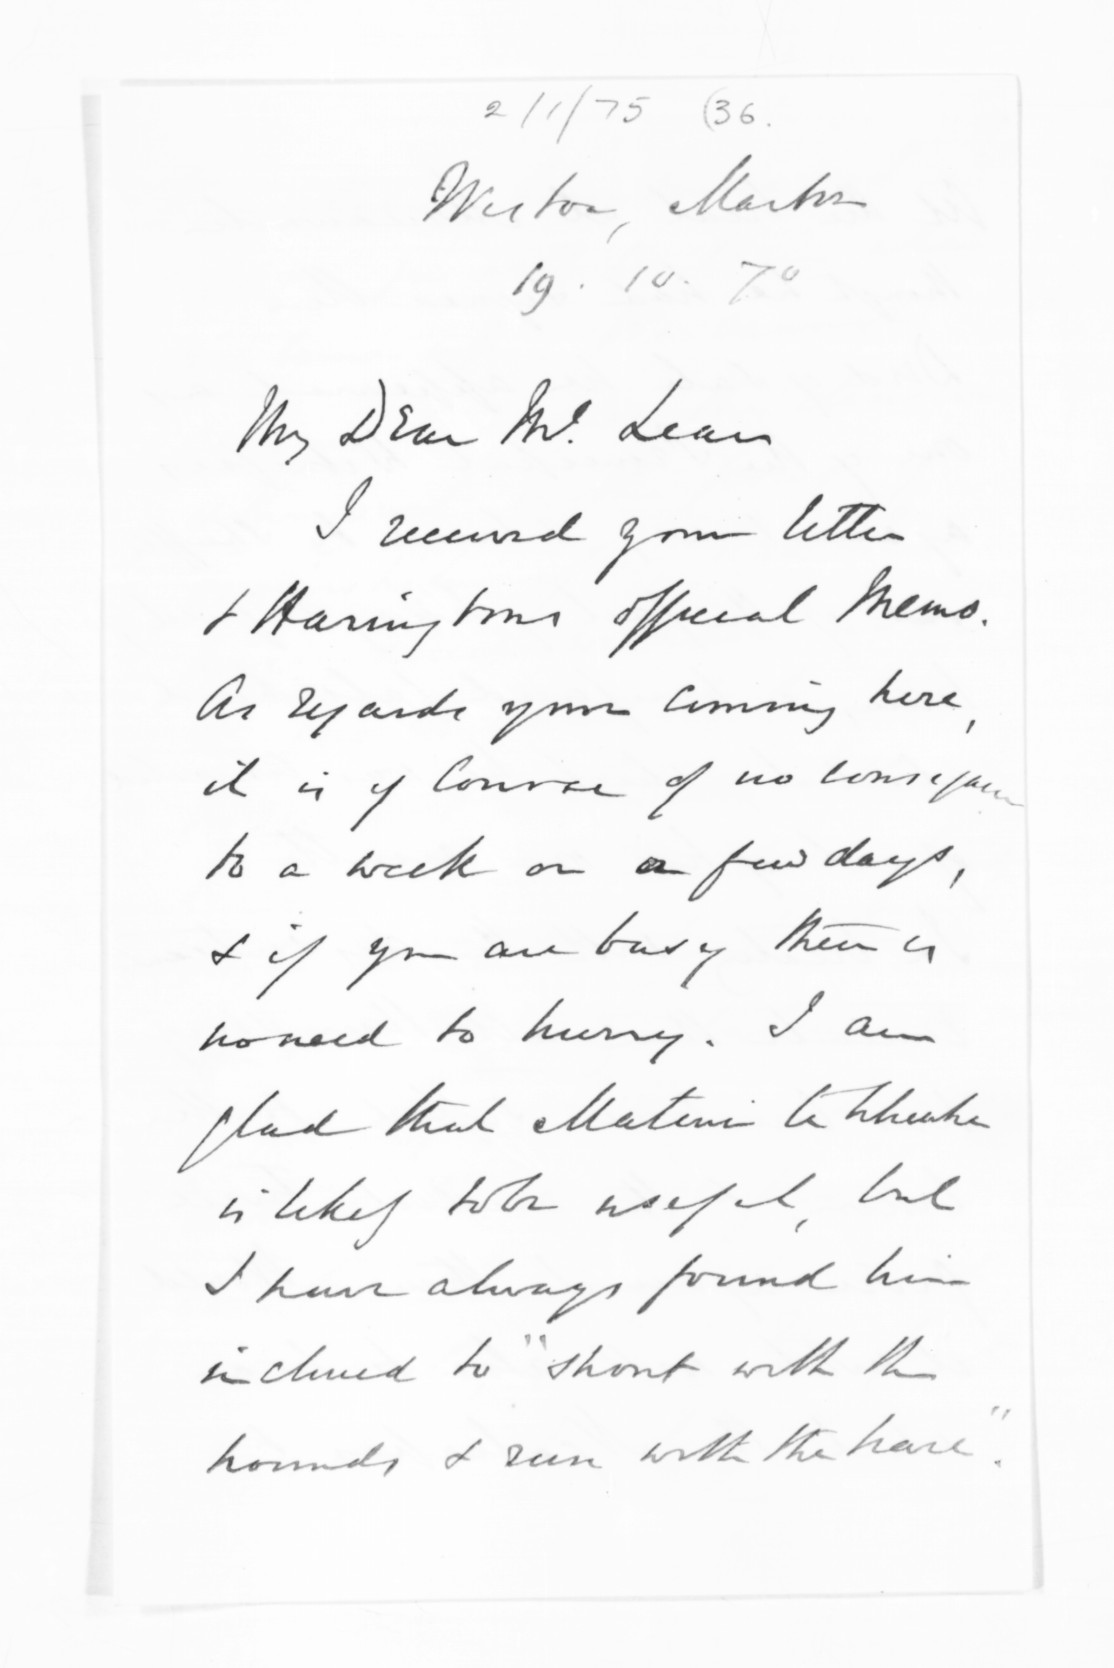 2/1/75 (36.
Westoe, Marton
19. 10. 70
My Dear McLean
I received your letter
& Haringtons official Memo.
As regards your coming here,
it is of Course of no consequence
to a week or a few days,
& if you are busy there is
no need to hurry. I am
glad that Matene te Whiwhi
is likely to be useful, but
I have always found him
inclined to "shout with the
hounds & run with the hare".